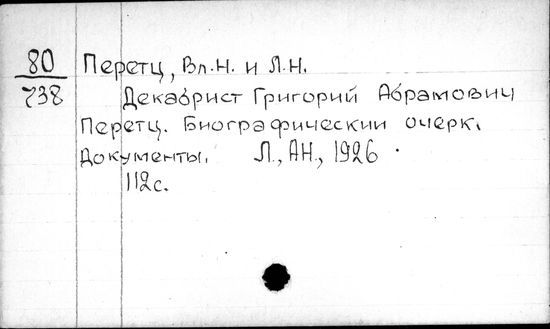 80 Перетц, Вл.Н. и Л.Н.
738 Декабрист Григорий Абрамович
Перетц. Биографический очерк.
Документы. Л., АН., 1926
112с.